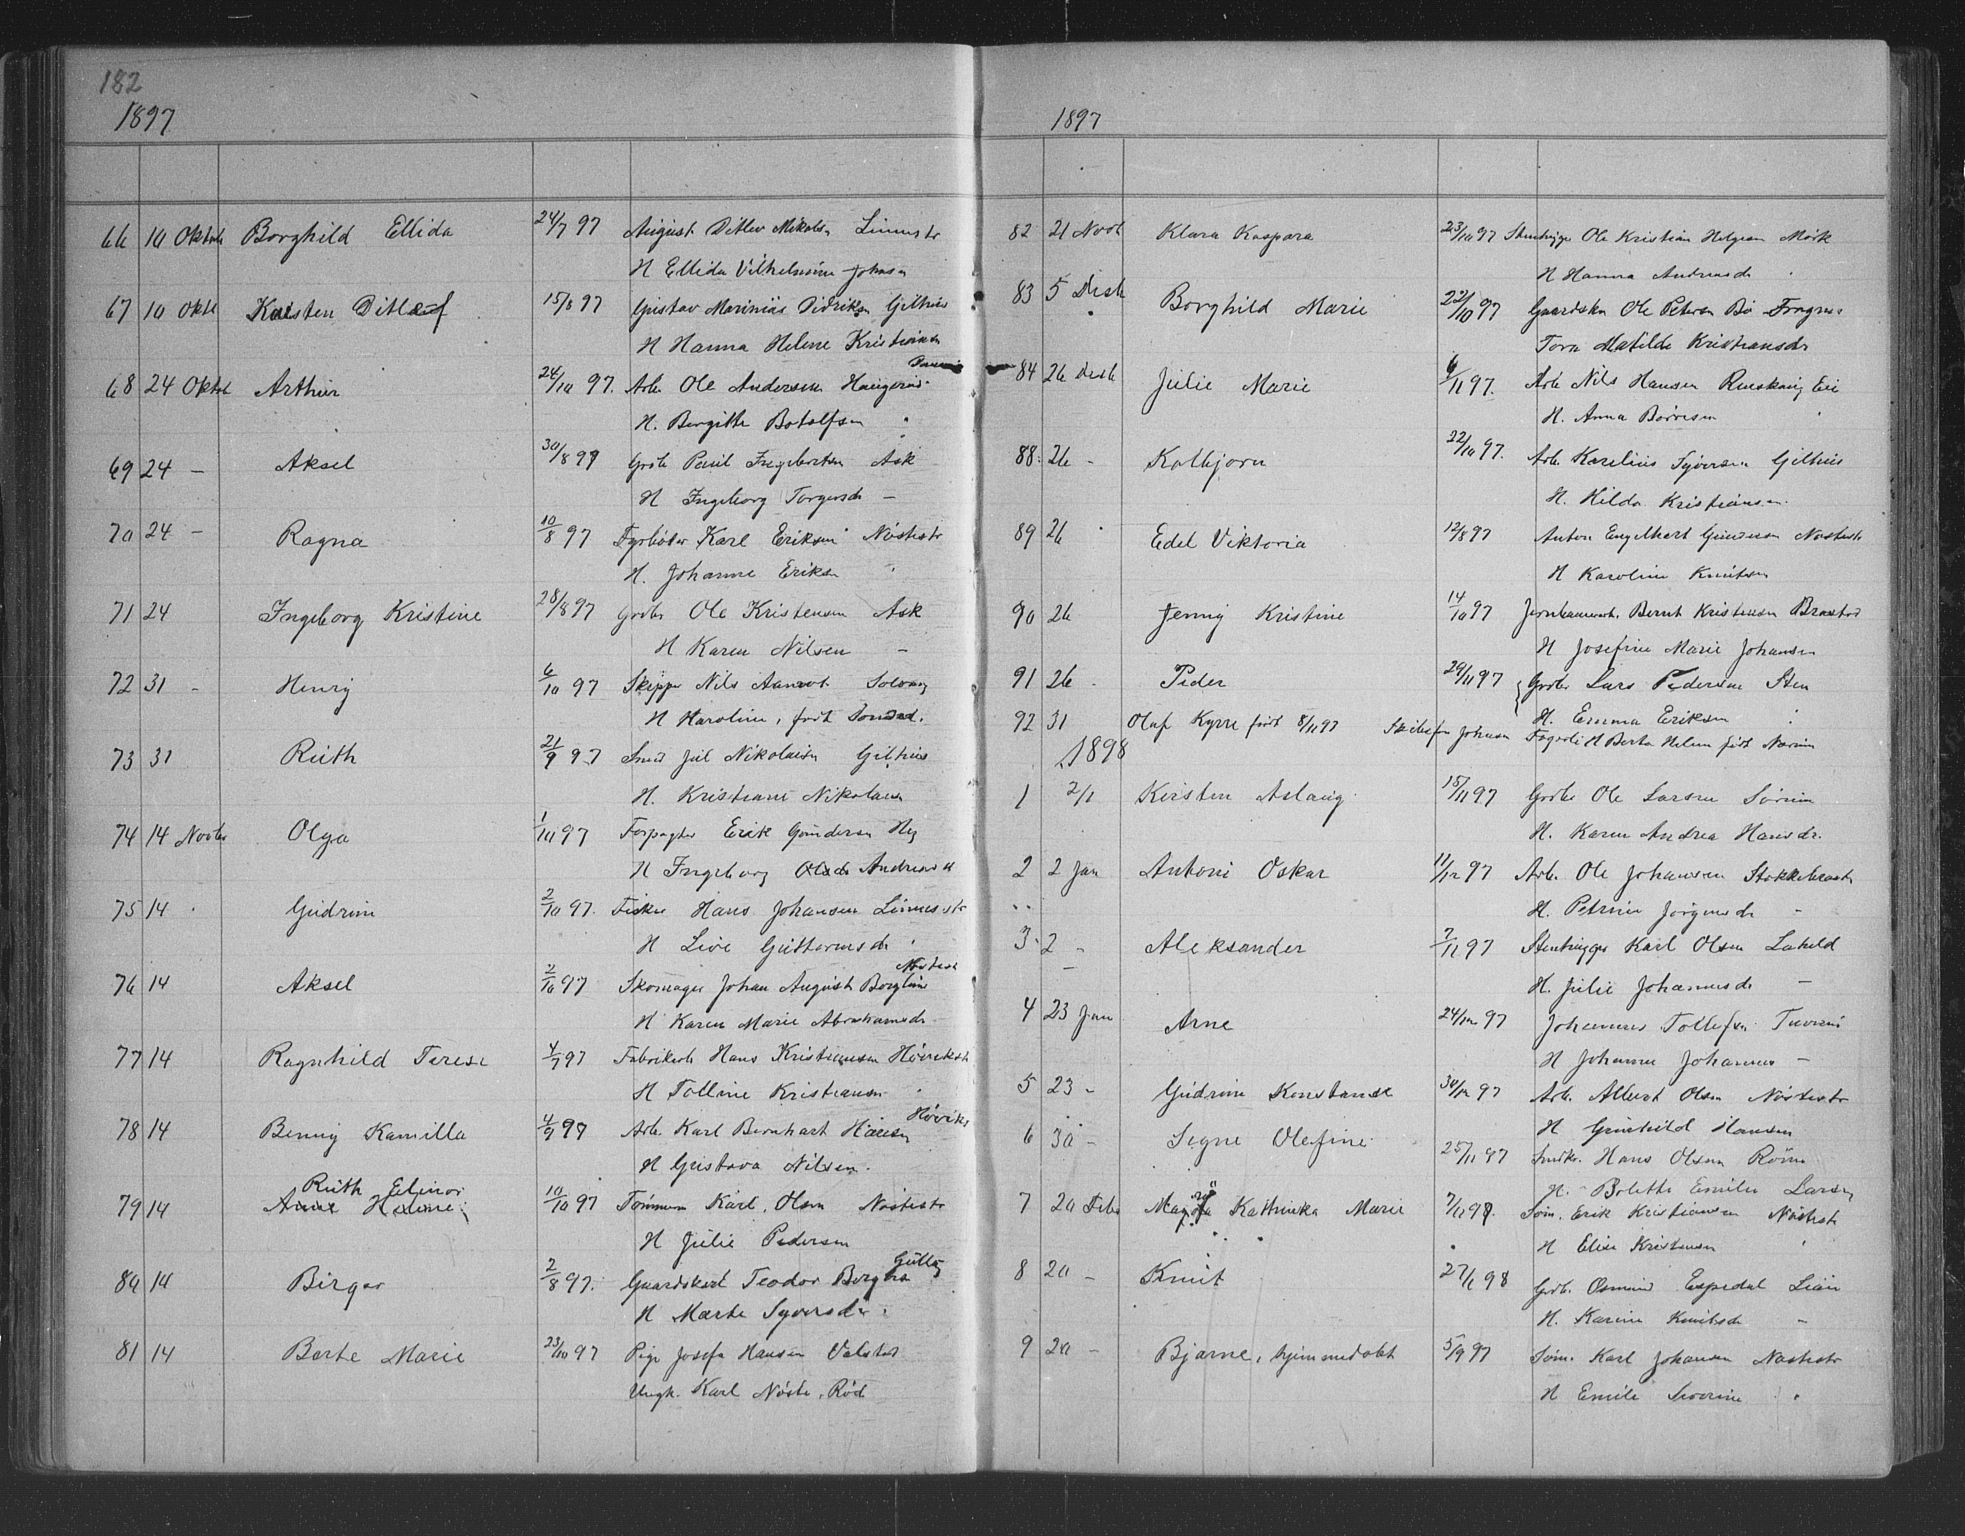 182
1897
66 10 Oktob Borghild Ellida 24/7 97 August Ditlev Mikals Linnestr
H Ellida Vilhelmine Johnsen
67 10 Oktb Karsten Ditlef 15/8 97 Gustav Marinius Didriksn Gilhus
H Hanna Helene Kristians
68 24 Oktob Arthur 24/10 97. Arb. Ole Andersen Haugerud
H. Bergitte Botolfsen "
69 24 — Aksel 30/8 97 Grdb Paul Ingebretsen Ask
H Ingeborg Torgersdr —
70 24 — Ragna 10/8 97 Fyrbøder Karl Eriksen Nøstestr
H. Johanne Eriksn "
71 24 Ingeborg Kristine 28/8 97 Grdbr Ole Kristensen Ask
H Karen Nilsen —
72 31 - Henry 6/10 97 Skipper Nils Solvang
H Karoline, født
73 31 Ruth 21/9 97 Smed Jul Nikolaisen Gilhus
H. Kristiane Nikolaisn
74 14 Novbr Olga 1/10 97 Forpagter Erik Gundersn Heg
H Ingeborg Olsdr Andreasd
75 14 Gudrun 2/10 97. Fisker Hans Johansen Linnesstr
H Live Guttormsdr "
76 14 Aksel 2/10 97 Skomager Johan August Borglin Nøstest
H Karen Marie Abrahamsdr
77 14 Ragnhild Terese 4/7 97 Fabrikarb Hans Kristiansen Høvikstr
H Tolline Kristiansen "
78 14 Benny Kamilla 4/9 97 Arb. Karl Bernhart Hansen Høviks
H Gustava Nilsen.
Ruth Elinor
79 14 Anne Helene 10/10 97 Tømmerm Karl Olsen Nøstestr
H Julie Pedersen
80 14 Birger 2/8 97. Gaardskarl Teodor Berg
H Marte Syversdr
81 14 Berte Marie 23/10 97 Pige Josefa Hansen Valstad
Ungk. Karl Nøste, Rød
1897
82 21 Novb Klara Kaspara 23/10 97 Stenhugger Ole Kristian Helgesen Mørk
H Hanna Andreasdr "
83 5 Desb Borghild Marie 22/10 97 Gaardskar Ole Petersen Bø
Tora Matilde Kristiansdr
84 26 Desb Julie Marie 6/11 97. Arb Nils Hansen Eie
H. Anna Børresen "
88. 26 - Kolbjørn 22/10 97. Arb. Karelius Syversen Gilhus
H. Hilda Kristiansen.
89 26 Edel Viktoria 12/8 97 Anton Engelhart Gundersen Nøstestr
H Karoline Knutsen
90 26 Jenny Kristine 14/10 97 Jernbanearb. Bernt Kristensen
H Josefine Marie Johansen
91 26 - Peder 29/11 97 Grdbr Lars Pedersen Sten
H. Emma Eriksen "
92 31 Olaf Kyrre født 8/11 97 Johnsen H Berta Helene født
1898
1 2/1 Kirsten Aslaug 15/11 97 Grdbr Ole Larsen Sørum
H. Karen Andrea Hansdr.
2 2 Jan Antoni Oskar 11/12 97 Arb. Ole Johansen Stokkebrastr
H. Petrine Jørgensdr "
3. 2 - Aleksander 7/11 97 Stenhugger Karl Olsen Laheld
H. Julie Johannesdr —
4 23 Jan Arne 24/12 97 Johannes Tollefsn
H Johanne Johannes —
5 23 - Gudrun Konstanse 30/12 97 Arb. Albert Olsen Nøstestr
H Gunhild Hansen
6 30 - Signe Olefine 25/11 97 Smdkr. Hans Olsen
H. Bolette Emilie Larsen
7 20 Feb Kathinka Marie 7/11 97. Søm. Erik Kristiansen Nøstestr
H Elise Kristensen
8 20 - Knut 27/1 98 Grdb. Osmund Espedal Lian
H. Karine Knutsdr —
9 20 - Bjarne, hjemmedøbt 5/9 97 Søm. Karl Johansen Nøstestr
H Emile Severine "